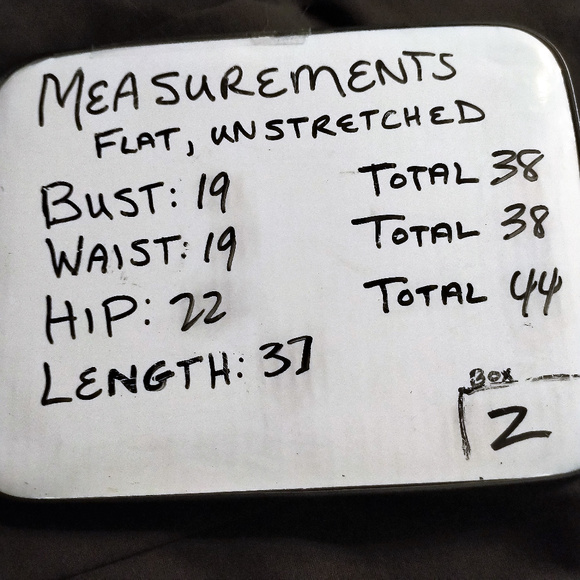 MEASUREMENTS
FLAT, UNSTRETCHED
BUST: 19 TOTAL 38
WAIST: 19 TOTAL 38
HIP: 22 TOTAL 44
LENGTH: 37
BOX
2